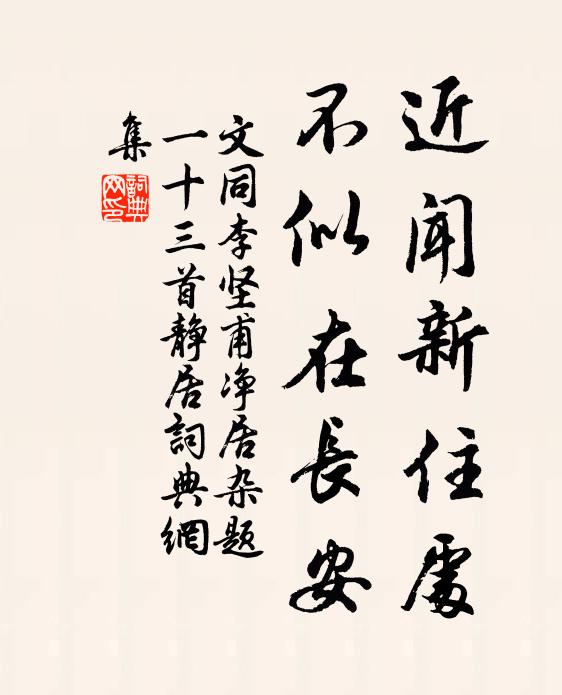 近闻新住處
不似在長安
文同李坚甫净居杂题
一十三首静居詞典網
集
詞典網印